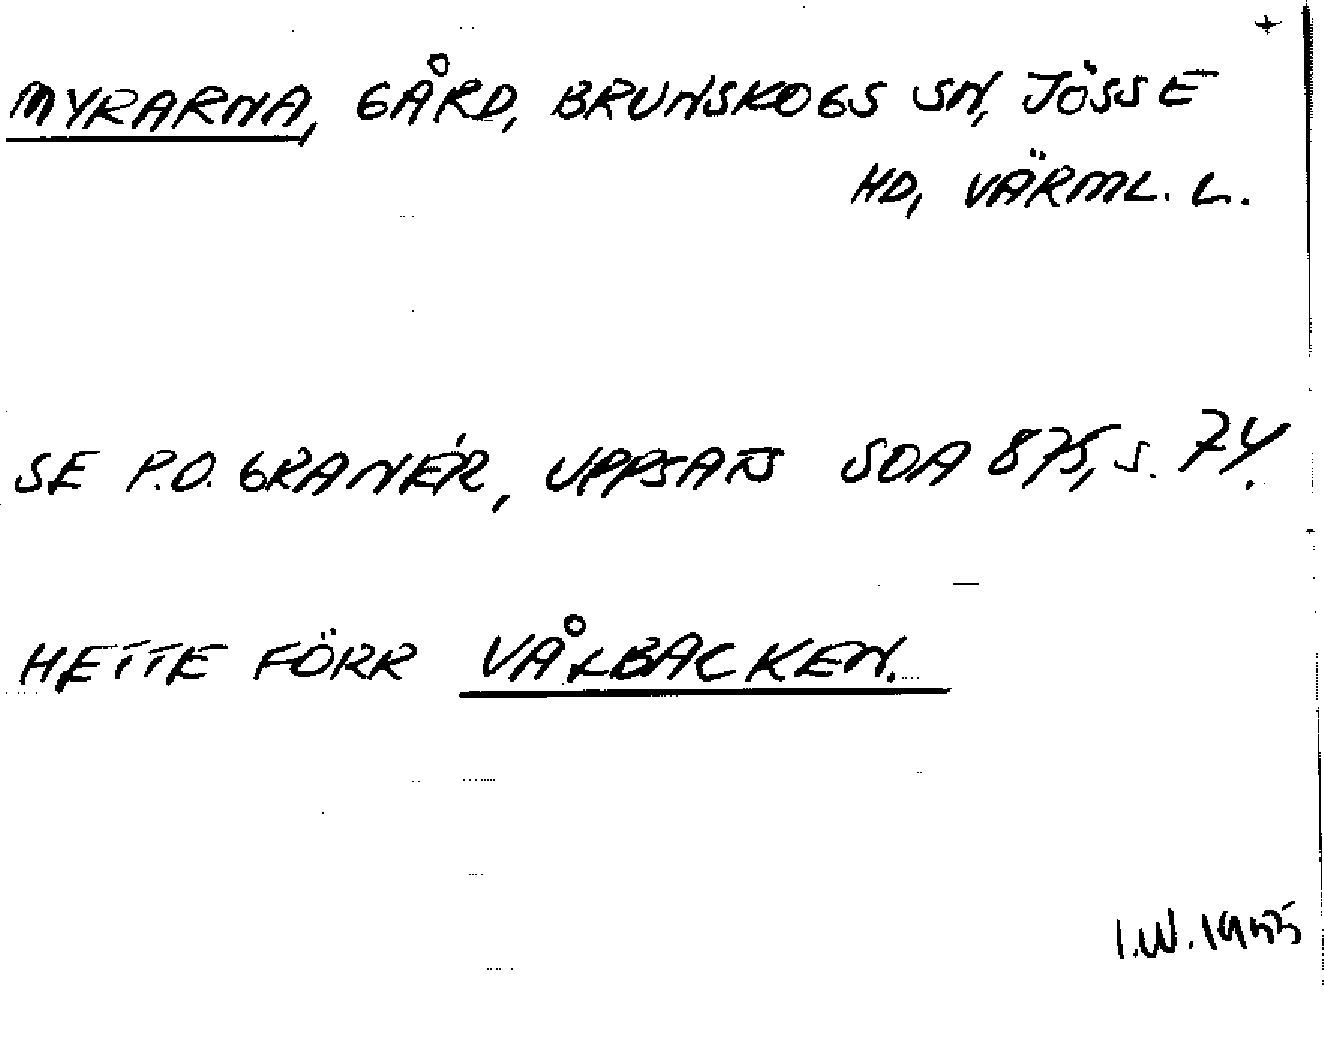 MYRARNA, GÅRD, BRUNSKOGS SN, JÖSSE
HD, VÄRML. L.
SE P.O. GRANÉR, UPPSATS SOA 875, S. 74.
HETTE FÖRR VÅLBACKEN.
I.W. 1955